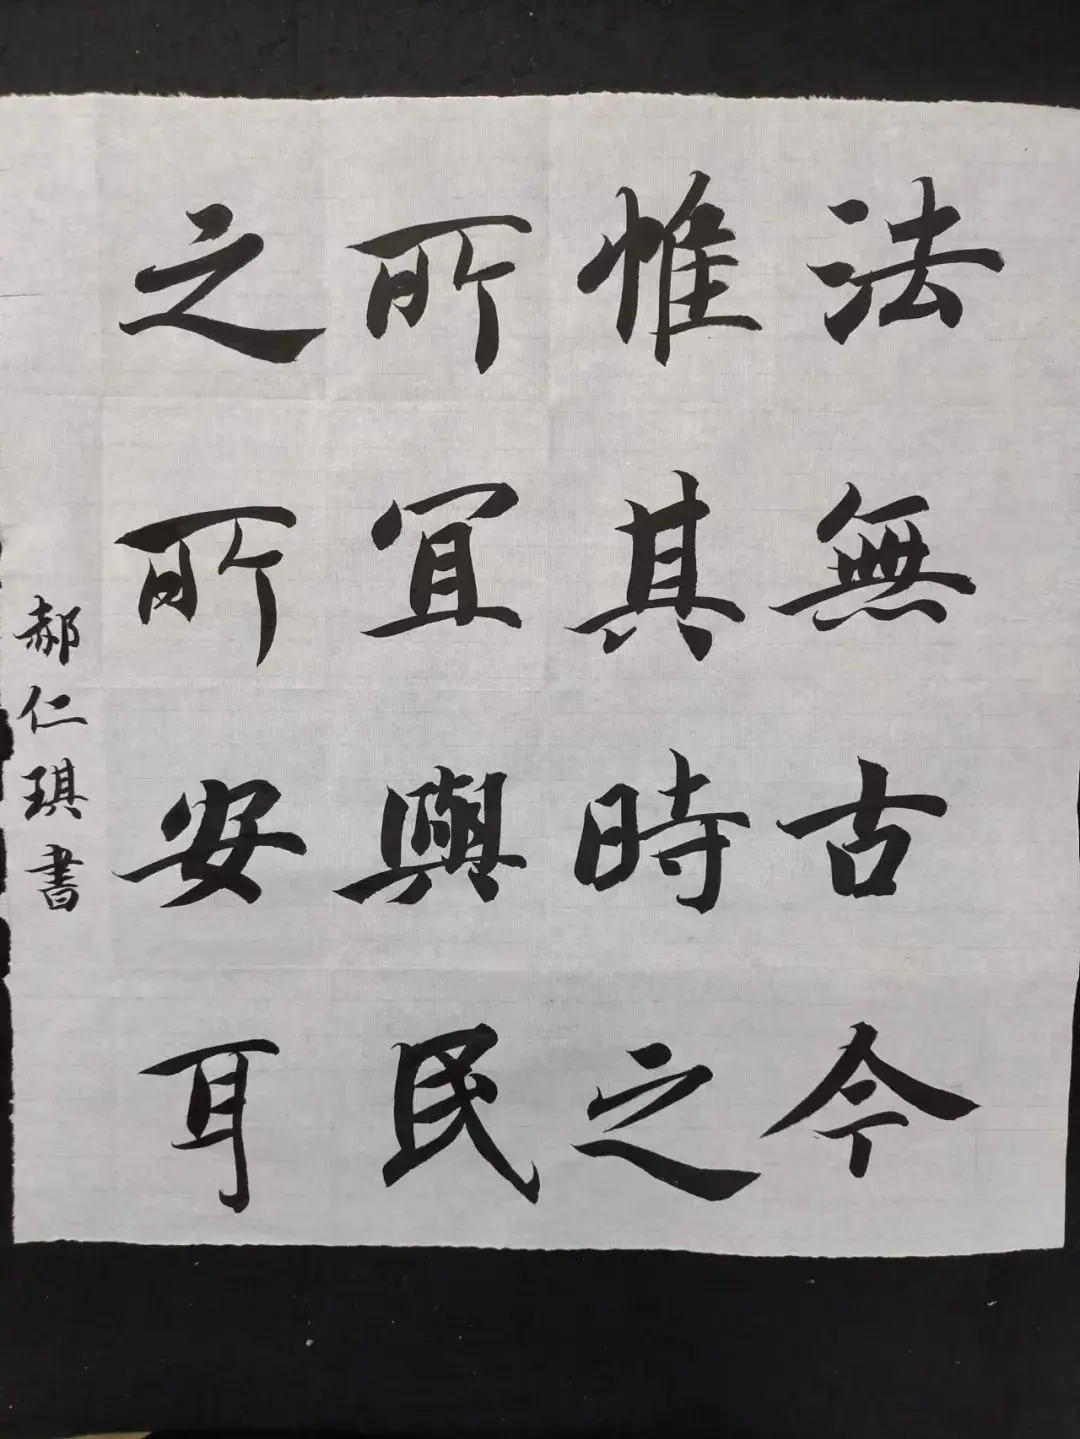 法無古今
惟其時之
所宜與民
之所安耳
郝仁琪書